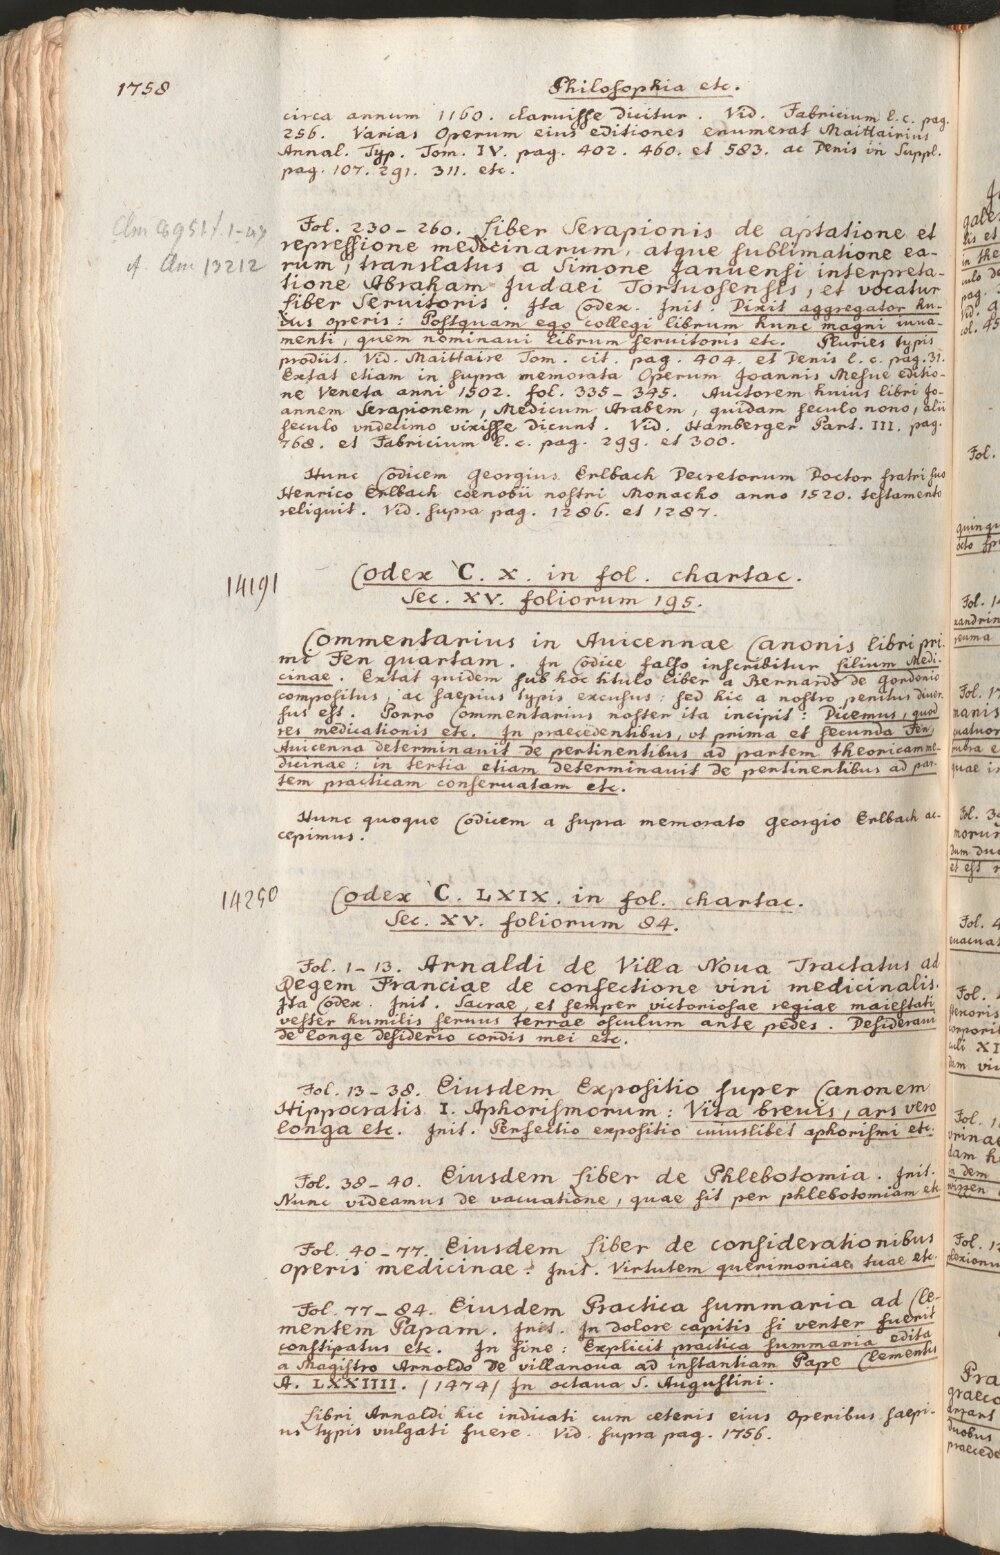 1758
Philosophia etc.
circa annum 1160. claruisse dicitur. Vid. Fabricium l. c. pag.
256. Varias Operum eius editiones enumerat Maittairius
Annal. Typ. Tom. IV. pag. 402. 460. et 583. ac Denis in Suppl.
pag. 107. 291. 311. etc.
Fol. 230-260. Liber Serapionis de aptatione et
repressione medicinarum, atque sublimatione ea-
rum, translatus a Simone Januensi interpreta-
tione Abraham Judaei Tortuosensis, et vocatur
Liber Seruitoris. Ita Codex. Init. Dixit aggregator hu-
ius operis: Postquam ego collegi librum hunc magni iuua-
menti, quem nominaui librum seruitoris etc. Pluries typis
prodiit. Vid. Maittaire Tom. cit. pag. 404. et Denis l. c. pag. 31.
Extat etiam in supra memorata Operum Joannis Mesue editio-
ne Veneta anni 1502. fol. 335-345. Auctorem huius libri Jo-
annem Serapionem, Medicum Arabem, quidam seculo nono, alii
seculo vndecimo vixisse dicunt. Vid. Hamberger Part. III. pag.
768. et Fabricium l. c. pag. 299. et 300.
Hunc Codicem Georgius Erlbach Decretorum Doctor fratri suo
Henrico Erlbach coenobii nostri Monacho anno 1520. testamento
reliquit. Vid. supra pag. 1286. et 1287.
14191
Codex C. X. in fol. chartac.
Sec. XV. foliorum 195.
Commentarius in Auicennae Canonis libri pri-
mi Fen quartam. In Codice falso inscribitur Lilium Medi-
cinae. Extat quidem sub hoc titulo Liber a Bernardo de Gordonio
compositus, ac saepius typis excusus: sed hic a nostro penitus diuer
sus est. Porro Commentarius noster ita incipit: Dicemus, quod
res medicationis etc. In praecedentibus, vt prima et secunda Fen,
Auicenna determinauit de pertinentibus ad partem theoricam me-
dicinae: in tertia etiam determinauit de pertinentibus ad par-
tem practicam conseruatam etc.
Hunc quoque Codicem a supra memorato Georgio Erlbach ac-
cepimus.
14250
Codex C. LXIX. in fol. chartac.
Sec. XV. foliorum 84.
Fol. 1-13. Arnaldi de Villa Noua Tractatus ad
Regem Franciae de confectione vini medicinalis.
Ita Codex. Init. Sacrae, et semper victoriosae regiae maiestati
vester humilis seruus terrae osculum ante pedes. Desideraui
de longe desiderio cordis mei etc.
Fol. 13-38. Eiusdem Expositio super Canonem
Hippocratis I. Aphorismorum: Vita breuis, ars vero
longa etc. Init. Perfectio expositio cuiuslibet aphorismi etc.
Fol. 38-40. Eiusdem Liber de Phlebotomia. Init.
Nunc videamus de vacuatione, quae fit per phlebotomiam etc
Fol. 40-77. Eiusdem Liber de considerationibus
operis medicinae. Init. Virtutem querimoniae tuae etc.
Fol. 77-84. Eiusdem Practica summaria ad Cle-
mentem Papam. Init. In dolore capitis si venter fuerit
constipatus etc. In fine: Explicit practica summaria edita
a Magistro Arnoldo de villanoua ad instantiam Pape Clementis
A. LXXIIII. /1474/ In octaua S. Augustini.
Libri Arnaldi hic indicati cum ceteris eius Operibus saepi-
us typis vulgati fuere. Vid. supra pag. 1756.